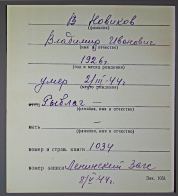 В Новиков
(фамилия)
Владимир Иванович
(имя и отчество)
1926 г.
(год и месяц рождения)
умер 2/III-44 г.
отец Рыблаг —
(фамилия, имя и отчество)
мать —
(фамилия, имя и отчество)
номер и страниц книги 1034
номер записи Ленинский Загс
г.